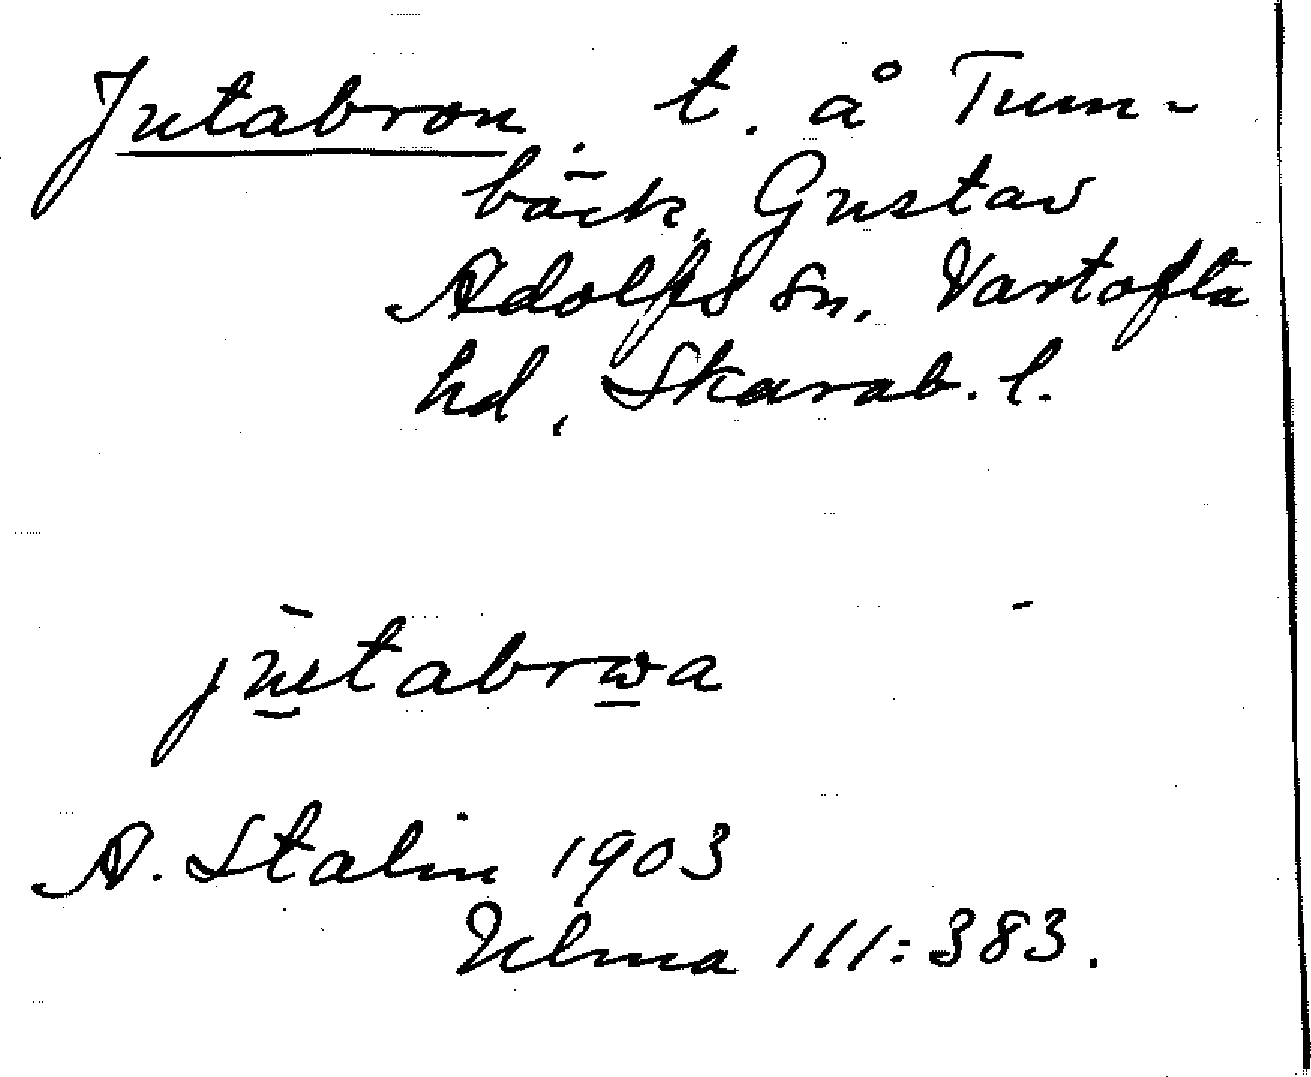 Jutabron, t. å Tum-
bäck, Gustav
Adolfs sn, Vartofta
hd, Skarab. l.
jutabrωa
A. Stalin 1903
Ulma 111:383.